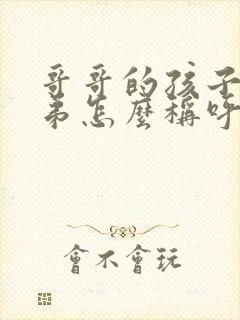 哥哥的孩子
弟怎麼稱呼
會不會玩